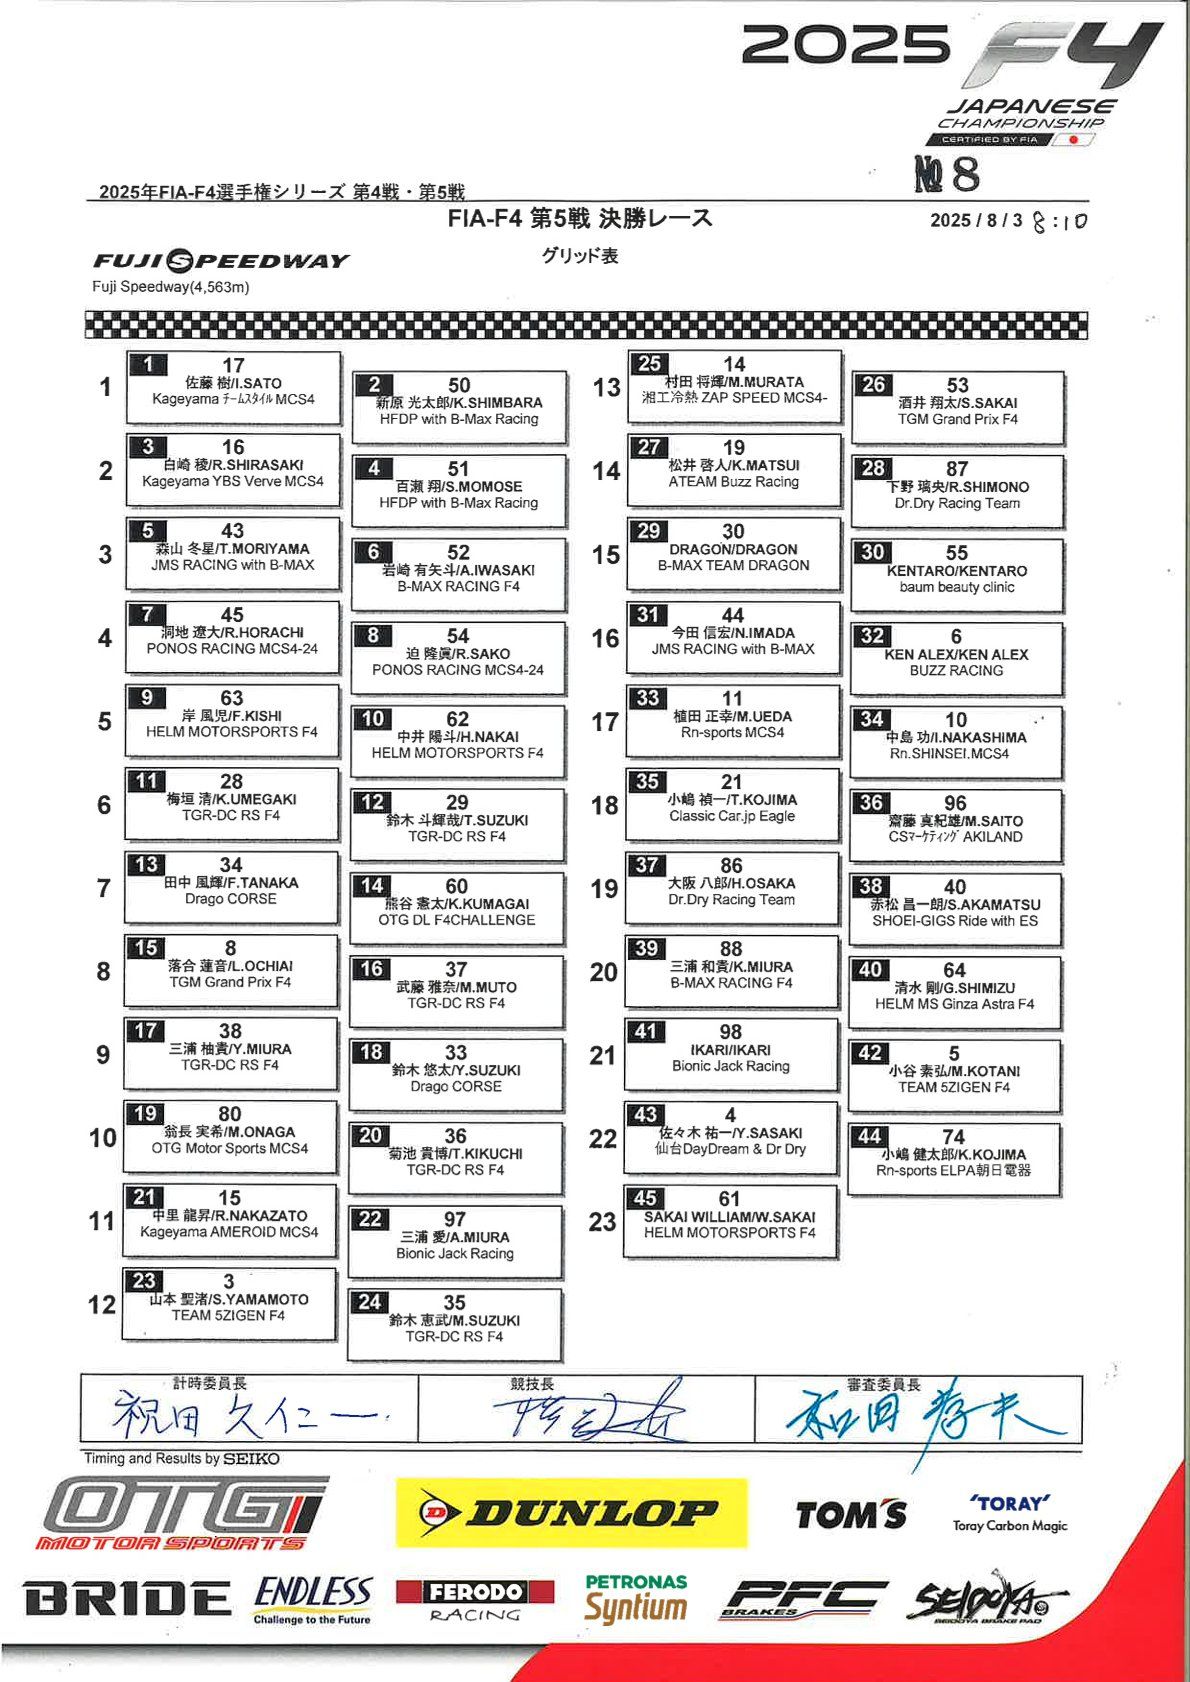 2025 F4
JAPANESE
CHAMPIONSHIP
CERTIFIED BY FIA
№ 8
2025年FIA-F4選手権シリーズ 第4戦・第5戦
FIA-F4 第5戦 決勝レース
2025 / 8 / 3 8:10
グリッド表
FUJI SPEEDWAY
Fuji Speedway(4,563m)
1
1 17
佐藤 樹/I.SATO
Kageyama ﾁｰﾑｽﾀｲﾙ MCS4
2 50
新原 光太郎/K.SHIMBARA
HFDP with B-Max Racing
2
3 16
白崎 稜/R.SHIRASAKI
Kageyama YBS Verve MCS4
4 51
百瀬 翔/S.MOMOSE
HFDP with B-Max Racing
3
5 43
森山 冬星/T.MORIYAMA
JMS RACING with B-MAX
6 52
岩崎 有矢斗/A.IWASAKI
B-MAX RACING F4
4
7 45
洞地 遼大/R.HORACHI
PONOS RACING MCS4-24
8 54
迫 隆眞/R.SAKO
PONOS RACING MCS4-24
5
9 63
岸 風児/F.KISHI
HELM MOTORSPORTS F4
10 62
中井 陽斗/H.NAKAI
HELM MOTORSPORTS F4
6
11 28
梅垣 清/K.UMEGAKI
TGR-DC RS F4
12 29
鈴木 斗輝哉/T.SUZUKI
TGR-DC RS F4
7
13 34
田中 風輝/F.TANAKA
Drago CORSE
14 60
熊谷 憲太/K.KUMAGAI
OTG DL F4CHALLENGE
8
15 8
落合 蓮音/L.OCHIAI
TGM Grand Prix F4
16 37
武藤 雅奈/M.MUTO
TGR-DC RS F4
9
17 38
三浦 柚貴/Y.MIURA
TGR-DC RS F4
18 33
鈴木 悠太/Y.SUZUKI
Drago CORSE
10
19 80
翁長 実希/M.ONAGA
OTG Motor Sports MCS4
20 36
菊池 貴博/T.KIKUCHI
TGR-DC RS F4
11
21 15
中里 龍昇/R.NAKAZATO
Kageyama AMEROID MCS4
22 97
三浦 愛/A.MIURA
Bionic Jack Racing
12
23 3
山本 聖渚/S.YAMAMOTO
TEAM 5ZIGEN F4
24 35
鈴木 恵武/M.SUZUKI
TGR-DC RS F4
13
25 14
村田 将輝/M.MURATA
湘工冷熱 ZAP SPEED MCS4-
26 53
酒井 翔太/S.SAKAI
TGM Grand Prix F4
14
27 19
松井 啓人/K.MATSUI
ATEAM Buzz Racing
28 87
下野 璃央/R.SHIMONO
Dr.Dry Racing Team
15
29 30
DRAGON/DRAGON
B-MAX TEAM DRAGON
30 55
KENTARO/KENTARO
baum beauty clinic
16
31 44
今田 信宏/N.IMADA
JMS RACING with B-MAX
32 6
KEN ALEX/KEN ALEX
BUZZ RACING
17
33 11
植田 正幸/M.UEDA
Rn-sports MCS4
34 10
中島 功/I.NAKASHIMA
Rn.SHINSEI.MCS4
18
35 21
小嶋 禎一/T.KOJIMA
Classic Car.jp Eagle
36 96
齋藤 真紀雄/M.SAITO
CSﾏｰｹﾃｨﾝｸﾞ AKILAND
19
37 86
大阪 八郎/H.OSAKA
Dr.Dry Racing Team
38 40
赤松 昌一朗/S.AKAMATSU
SHOEI-GIGS Ride with ES
20
39 88
三浦 和貴/K.MIURA
B-MAX RACING F4
40 64
清水 剛/G.SHIMIZU
HELM MS Ginza Astra F4
21
41 98
IKARI/IKARI
Bionic Jack Racing
42 5
小谷 素弘/M.KOTANI
TEAM 5ZIGEN F4
22
43 4
佐々木 祐一/Y.SASAKI
仙台DayDream & Dr Dry
44 74
小嶋 健太郎/K.KOJIMA
Rn-sports ELPA朝日電器
23
45 61
SAKAI WILLIAM/W.SAKAI
HELM MOTORSPORTS F4
計時委員長 競技長 審査委員長
祝田 久仁一 和田 孝夫
Timing and Results by SEIKO
OTG MOTOR SPORTS
DUNLOP
TOM'S
'TORAY'
Toray Carbon Magic
BRIDE
ENDLESS
Challenge to the Future
FERODO RACING
PETRONAS
Syntium
PFC BRAKES
SEIDOYA
SEIDOYA BRAKE PAD